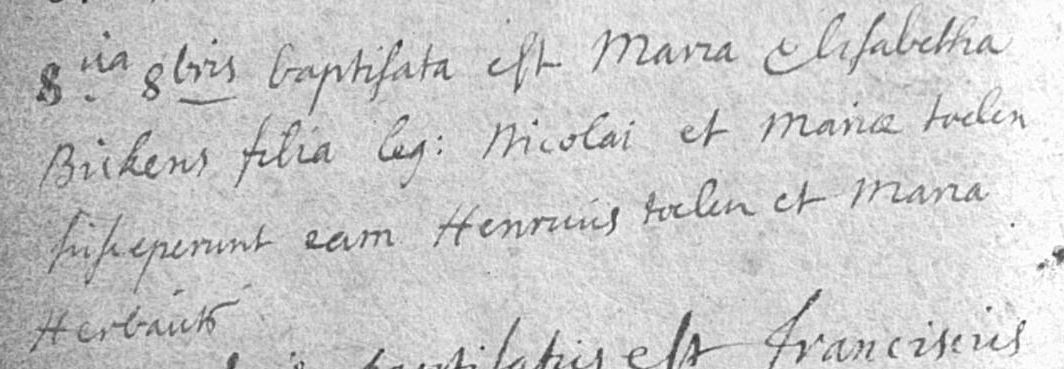 8va 8bris baptisata est Maria Elisabetha
Bickens filia leg: Nicolai et Mariæ toelen
susceperunt eam Henricus toelen et Maria
Herbauts
baptisatus est Franciscus